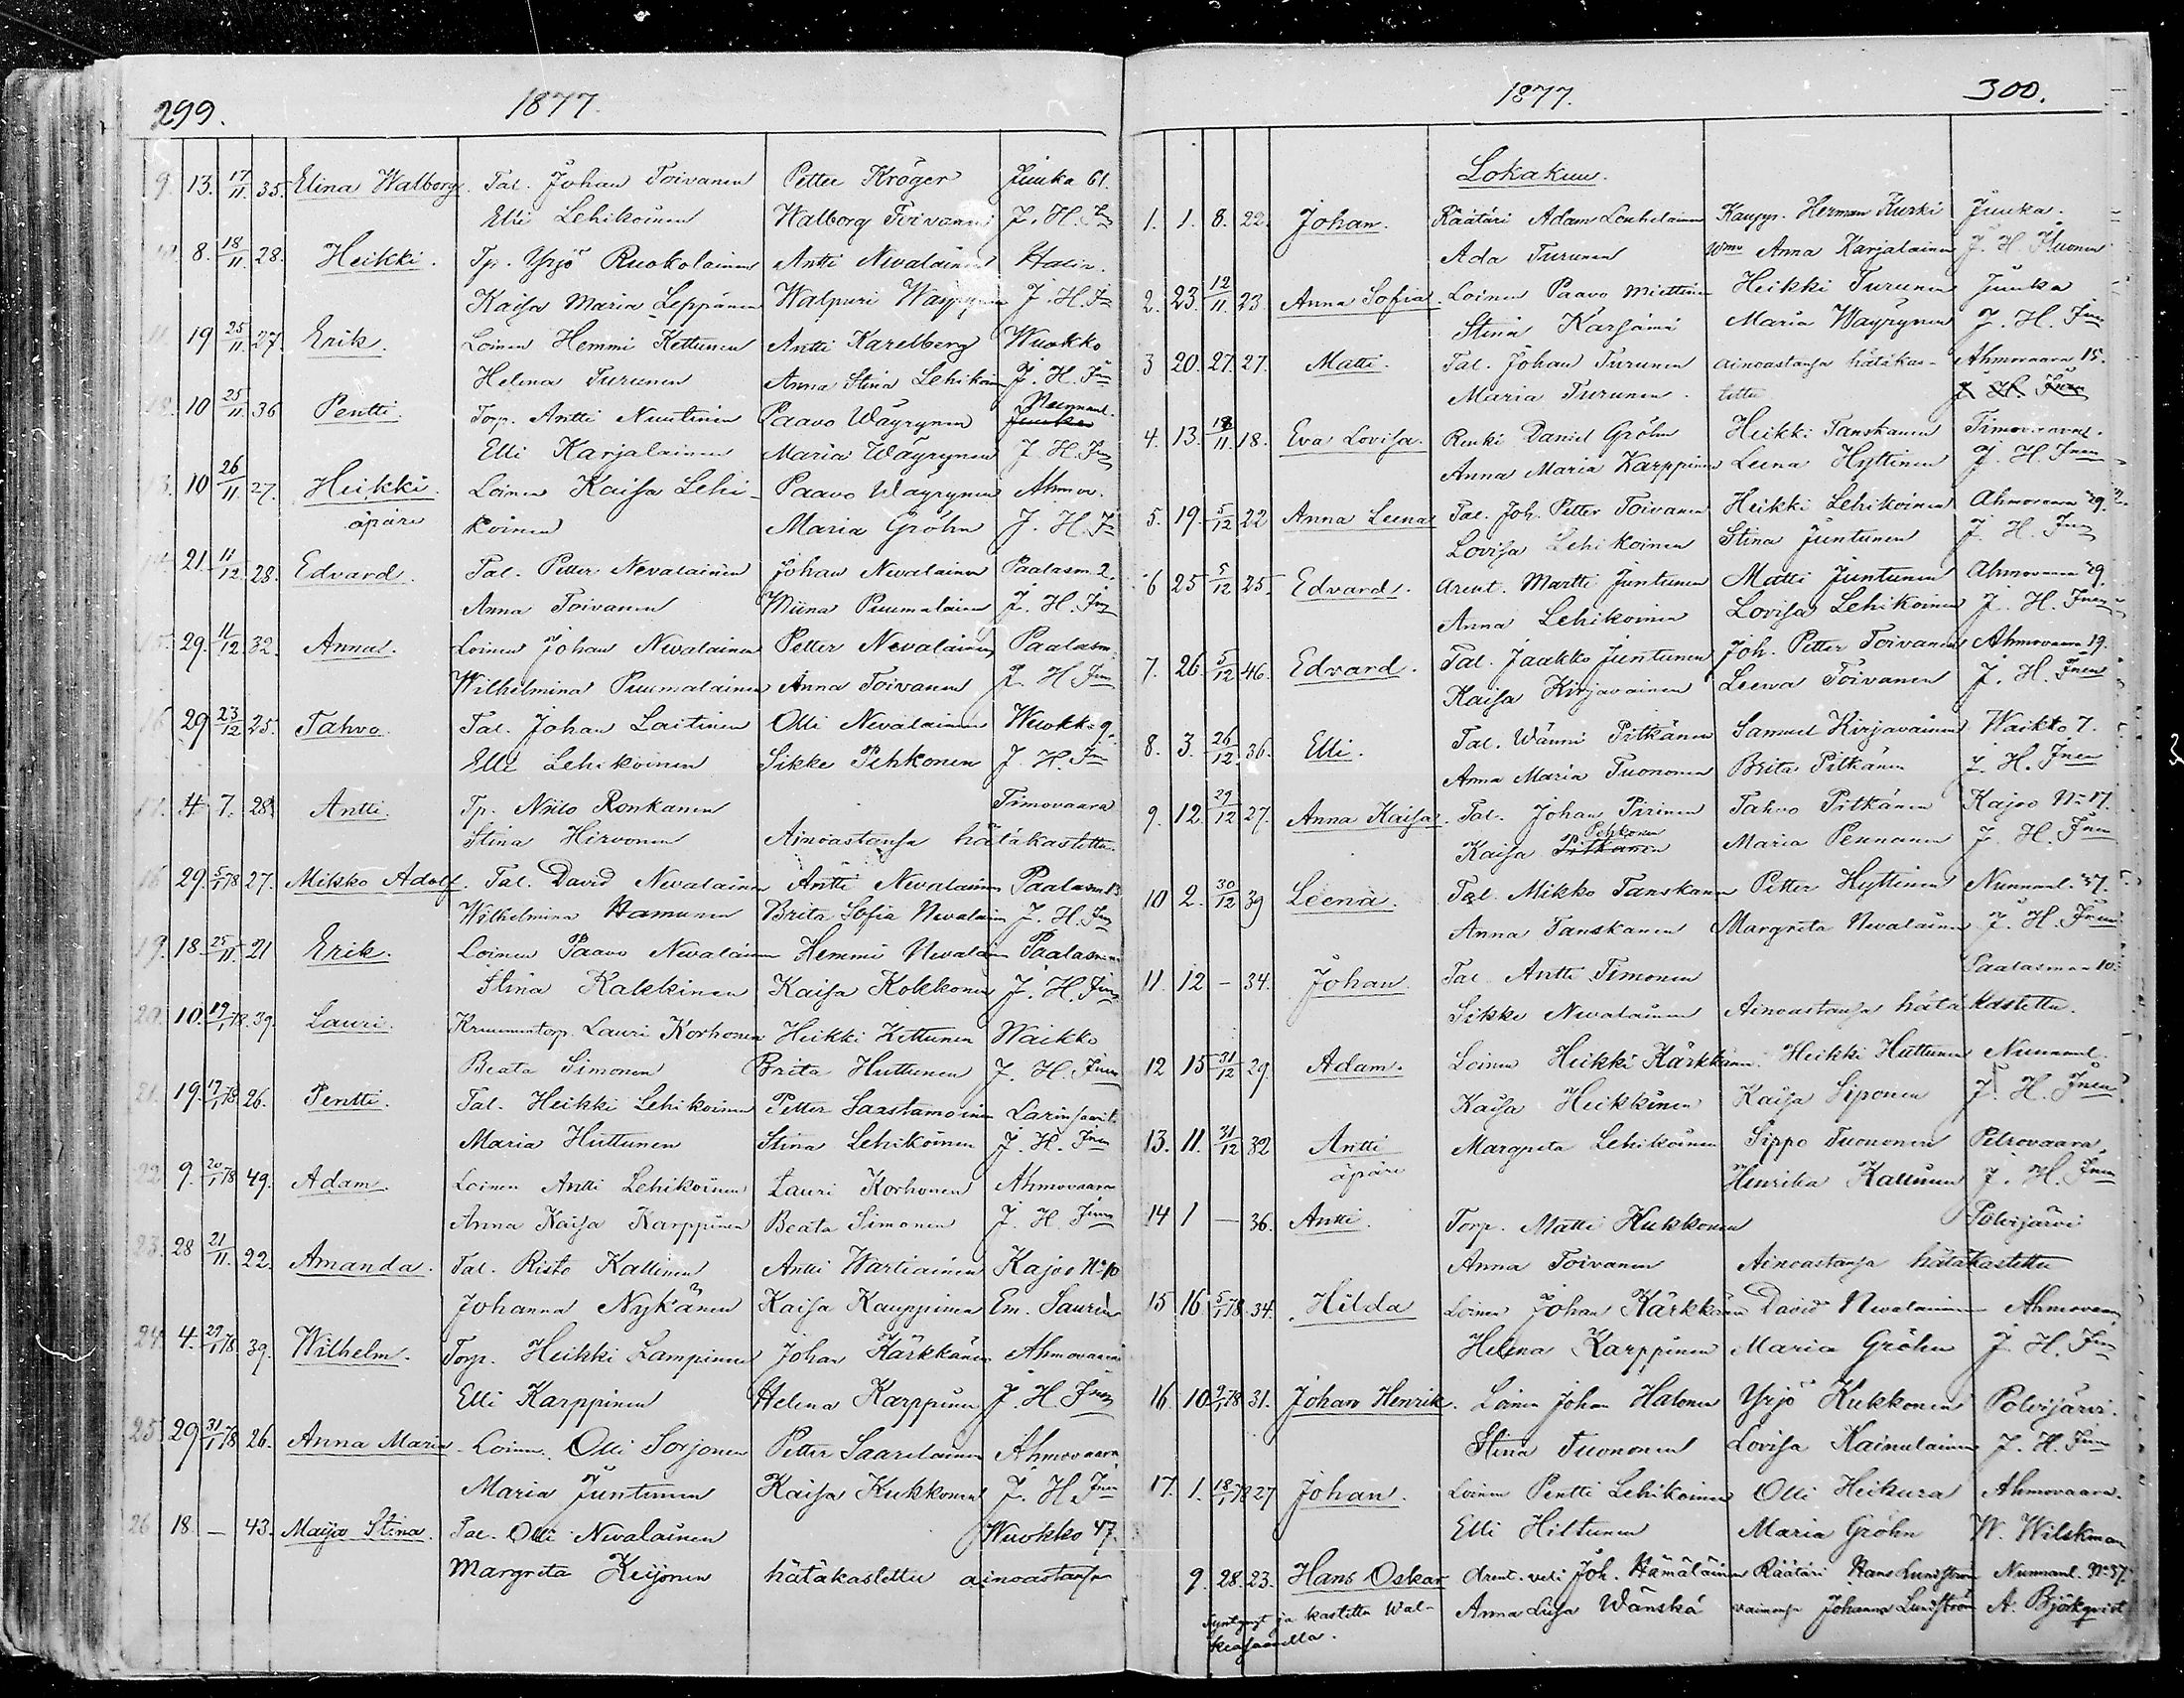 299.
1877.
9. 13. 17/11. 35. Elina Walborg. Tal. Johan Toivanen Petter Kröger Juuka 61.
Elli Lehikoinen Walborg Toivanen J. H. Jn
8. 18/11. 28. Heikki. Tp. Yrjö Ruokolainen Antti Nevalainen Halin.
Kaisa Maria Leppänen Walpuri Wäyrynen J. H. Jn
11 19 25/11. 27. Erik. Loinen Hemmi Kettunen Antti Karelberg Wuokko
Helena Turunen Anna Stina Lehikoin J. H. Jn
12. 10 25/11. 36 Pentti. Torp. Antti Nuutinen Paavo Wäyrynen Nunnanl. Juuka
Elli Karjalainen Maria Wäyrynen J. H. Jn
13. 10 26/11. 27. Heikki. Loinen Kaisa Lehi- Paavo Wäyrynen Ahmov.
äpäre koinen Maria Gröhn J. H. Jn
14 21. 11/12. 28. Edvard. Tal. Petter Nevalainen Johan Nevalainen Paalasm. 2.
Anna Toivanen Miina Puumalainen J. H. Jn
15. 29. 11/12. 32. Anna. Loinen Johan Nevalainen Petter Nevalainen Paalasm.
Wilhelmina Puumalainen Anna Toivanen J. H. Jnn
16 29 23/12 25. Tahvo. Tal. Johan Laitinen Olli Nevalainen Wuokko 9.
Elli Lehikoinen Sikke Pehkonen J. H. Jnn
17. 4 7. 28. Antti. Tp. Niilo Ronkanen Timovaara
Stina Hirvonen Ainoastansa hätäkastettu.
18 29. 5/1 78 27. Mikko Adolf. Tal. David Nevalainen Antti Nevalainen Paalasm 13
Wilhelmina Hamunen Brita Sofia Nevalain J. H. Jnn
19. 18. 25/11. 21 Erik. Loinen Paavo Nevalainen Hemmi Nevalain Paalasmaa
Stina Kakkinen Kaisa Kokkonen J. H. Jnn
20. 10. 17/1 78. 39. Lauri. Kruununtorp. Lauri Korhonen Heikki Kettunen Waikko
Beata Simonen Brita Huttunen J. H. Jnen
21. 19. 17/1 78 26. Pentti. Tal. Heikki Lehikoinen Petter Saastamoinen Larinsaari
Maria Huttunen Stina Lehikoinen J. H. Jnen
22 9. 20/1 78 49. Adam. Loinen Antti Lehikoinen Lauri Korhonen Ahmovaara
Anna Kaisa Karppinen Beata Simonen J. H. Jnen
23. 28 21/11. 22. Amanda. Tal. Risto Kallinen Antti Wartiainen Kajoo No 10
Johanna Nykänen Kaisa Kauppinen Em. Saurén
24 4. 27/1 78 39. Wilhelm. Torp. Heikki Lampinen Johan Kärkkäinen Ahmovaara
Elli Karppinen Helena Karppinen J. H. Jnen
25 29 31/1 78 26. Anna Maria. Loinen Olli Sorjonen Petter Saarelainen Ahmovaara
Maria Juntunen Kaisa Kukkonen J. H. Jnen
26 18. — 43. Maija Stina. Tal. Olli Nevalainen Wuokko 47.
Margreta Keijonen hätäkastettu ainoastansa
1877.
300.
Lokakuu.
1. 1. 8. 22. Johan. Räätäri Adam Louhelainen Kaupp. Herman Kurki Juuka.
Ada Turunen Wmo Anna Karjalainen J. H. Ihonen
2. 23. 12/11. 23. Anna Sofia. Loinen Paavo Miettinen Heikki Turunen Juuka
Stina Karjama Maria Wäyrynen J. H. Jnen
3 20. 27. 27. Matti. Tal. Johan Turunen ainoastansa hätäkas- Ahmovaara 15.
Maria Turunen. tettu J. H. Jnen
4. 13. 18/11. 18. Eva Lovisa. Renki Daniel Gröhn Heikki Tanskanen Timovaara.
Anna Maria Karppinen Leena Hyttinen J. H. Jnen
5. 19. 5/12 22 Anna Leena Tal. Joh. Petter Toivanen Heikki Lehikoinen Ahmovaara 29.
Lovisa Lehikoinen Stina Juntunen J. H. Jnen
6 25 5/12 25. Edvard. Arent. Martti Juntunen Matti Juntunen Ahmovaara 29.
Anna Lehikoinen Lovisa Lehikoinen J. H. Jnen
7. 26. 5/12 46. Edvard. Tal. Jaakko Juntunen Joh. Petter Toivanen Ahmovaara 19.
Kaisa Kirjavainen Leena Toivanen J. H. Jnen
8. 3. 26/12. 36. Elli. Tal. Wänni Pitkänen Samuel Kirjavainen Waikko 7.
Anna Maria Tuononen Brita Pitkänen J. H. Jnen
9. 12. 29/12 27. Anna Kaisa. Tal. Johan Piirinen Tahvo Pitkänen Kajoo No 17.
Kaisa Pitkänen Pehkonen Maria Pennanen J. H. Jnen
10 2. 30/12 39 Leena. Tal. Mikko Tanskanen Petter Hyttinen Nunnanl. 37.
Anna Tanskanen Margreta Nevalainen J. H. Jnen
11. 12 — 34. Johan. Tal. Antti Timonen Paalasmaa 10.
Sikke Nevalainen Ainoastansa hätäkastettu.
12 15 31/12 29. Adam. Loinen Heikki Kärkkänen. Heikki Huttunen Nunnanl.
Kaisa Heikkinen Kaisa Siponen J. H. Jnen
13. 11. 31/12 32 Antti Margreta Lehikoinen Sippo Tuononen Petrovaara
äpäre Henrika Kallinen J. H. Jnen
14 1 — 36. Antti. Torp. Matti Kukkonen Polvijärvi
Anna Toivanen Ainoastansa hätäkastettu
15 16 5/1 78. 34. Hilda Loinen Johan Kärkkänen David Nevalainen Ahmovaara
Helena Karppinen Maria Gröhn J. H. Jn
16. 10 9/1 78 31. Johan Henrik. Loinen Johan Halonen Yrjö Kukkonen Polvijärvi.
Stina Tuononen Lovisa Kainulainen J. H. Jnn
17. 1. 18/1 78 27 Johan. Loinen Pentti Lehikoinen Olli Heikura Ahmovaara.
Elli Hiltunen Maria Gröhn W. Wilskman
9. 28. 23. Hans Oskar Arent. veli Joh. Hämäläinen Räätäri Hans Lundström Nunnanl. No 37.
Syntynyt ja kastettu Wal- Anna Liisa Wänskä vaimonsa Johanna Lundström A. Björkqvist
keasaarella.